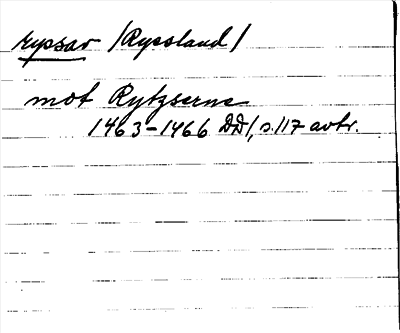 ryssar /Ryssland/
mot Rytzserne
1463-1466 DD1, s.117 avtr.